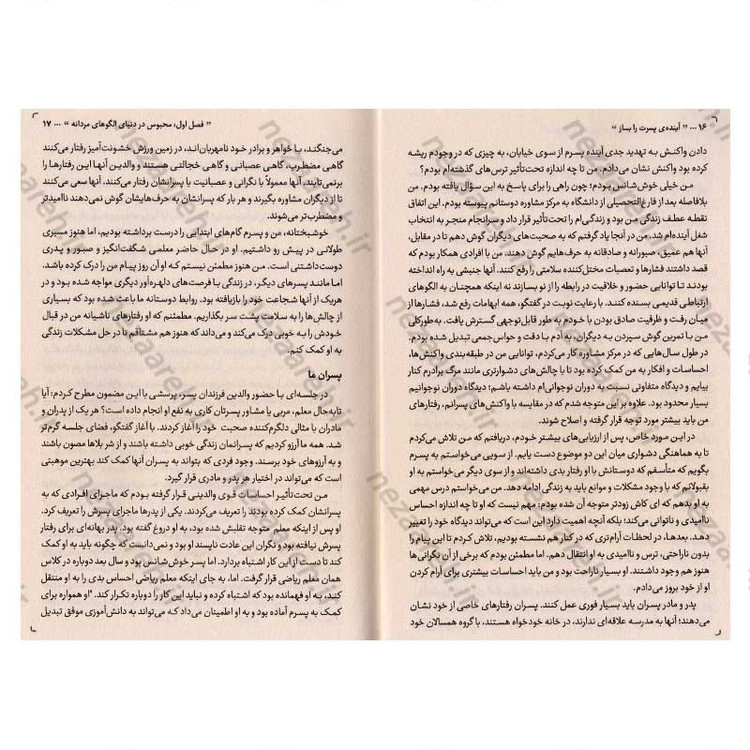 ۱۶ ... " آینده‌ی پسرت را بساز "
دادن واکنش به تهدید جدی آینده پسرم از سوی خیابان، به چیزی که در وجودم ریشه
کرده بود واکنش نشان می‌دادم. من تا چه اندازه تحت‌تأثیر ترس‌های گذشته‌ام بودم؟
من خیلی خوش‌شانس بودم؛ چون راهی را برای پاسخ به این سؤال یافته بودم. من
بلافاصله بعد از فارغ‌التحصیلی از دانشگاه به مرکز مشاوره دوستانم پیوسته بودم. این اتفاق
نقطه عطف زندگی من بود و زندگی‌ام را تحت‌تأثیر قرار داد و سرانجام منجر به انتخاب
شغل آینده‌ام شد. من در آنجا یاد گرفتم که به صحبت‌های دیگران گوش دهم تا در مقابل،
آنها هم عمیق، صبورانه و صادقانه به حرف‌هایم گوش دهند. من با افرادی همکار بودم که
قصد داشتند فشارها و تعصبات مختل‌کننده سلامتی را رفع کنند. آنها جنبشی به راه انداخته
بودند تا توانایی حضور و خلاقیت در رابطه را از نو بسازند نه اینکه همچنان به الگوهای
ارتباطی قدیمی بسنده کنند. با رعایت نوبت در گفتگو، همه ابهامات رفع شد، فشارها از
میان رفت و ظرفیت صادق بودن با خودم به طور قابل‌توجهی گسترش یافت. به‌طورکلی
من با تمرین گوش سپردن به دیگران، به آدم با دقت و حواس‌جمعی تبدیل شده بودم.
در طول سال‌هایی که در مرکز مشاوره کار می‌کردم، توانایی من در طبقه‌بندی واکنش‌ها،
احساسات و افکار به من کمک کرده بود تا با چالش‌های دشوارتری مانند مرگ برادرم کنار
بیایم و دیدگاه متفاوتی نسبت به دوران نوجوانی‌ام داشته باشم؛ دیدگاه دوران نوجوانیم
بسیار محدود بود. علاوه بر این متوجه شدم که در مقایسه با واکنش‌های پسرانم، رفتارهای
من باید بیشتر مورد توجه قرار گرفته و اصلاح شوند.
در این مورد خاص، پس از ارزیابی‌های بیشتر خودم، دریافتم که من تلاش می‌کردم
تا به هماهنگی دشواری میان این دو موضوع دست یابم. از سویی می‌خواستم به پسرم
بگویم که متأسفم که دوستانش با او رفتار بدی داشته‌اند و از سوی دیگر می‌خواستم به او
بقبولانم که با وجود مشکلات و موانع باید به زندگی ادامه دهد. من می‌خواستم درس مهمی
به او بدهم که ای کاش زودتر متوجه آن شده بودم: مهم نیست که او تا چه اندازه احساس
ناامیدی و ناتوانی می‌کند؛ بلکه آنچه اهمیت دارد این است که می‌تواند دیدگاه خود را تغییر
دهد. بعدها، در لحظات آرام‌تری که در کنار هم نشسته بودیم، تلاش کردم تا این پیام را
بدون ناراحتی، ترس و ناامیدی به او انتقال دهم. اما مطمئن بودم که برخی از آن نگرانی‌ها
هنوز هم وجود داشتند. او بسیار ناراحت بود و من باید احساسات بیشتری برای آرام کردن
او از خود بروز می‌دادم.
پدر و مادر پسران باید بسیار فوری عمل کنند. پسران رفتارهای خاصی از خود نشان
می‌دهند؛ آنها به مدرسه علاقه‌ای ندارند، در خانه خودخواه هستند، با گروه همسالان خود
" فصل اول؛ محبوس در دنیای الگوهای مردانه " ... ۱۷
می‌جنگند، با خواهر و برادر خود نامهربان‌اند، در زمین ورزش خشونت‌آمیز رفتار می‌کنند
گاهی مضطرب، گاهی عصبانی و گاهی خجالتی هستند و والدین آنها این رفتارها را
برنمی‌تابند. آنها معمولاً با نگرانی و عصبانیت با پسرانشان رفتار می‌کنند. آنها سعی می‌کنند
تا از دیگران مشاوره بگیرند و هر بار که پسرانشان به حرف‌هایشان گوش نمی‌دهند ناامیدتر
و مضطرب‌تر می‌شوند.
خوشبختانه، من و پسرم گام‌های ابتدایی را درست برداشته بودیم، اما هنوز مسیری
طولانی در پیش رو داشتیم. او در حال حاضر معلمی شگفت‌انگیز و صبور و پدری
دوست‌داشتنی است. من هنوز مطمئن نیستم که او آن روز پیام من را درک کرده باشد.
اما مانند پسرهای دیگر، در زندگی با فرصت‌های دلهره‌آور دیگری مواجه شده بود و در
هریک از آنها شجاعت خود را بازیافته بود. روابط دوستانه ما باعث شده بود که بسیاری
از چالش‌ها را به سلامت پشت سر بگذاریم. مطمئنم که او رفتارهای ناشیانه من در قبال
خودش را به خوبی درک می‌کند و می‌داند که هنوز هم مشتاقم تا در حل مشکلات زندگی
به او کمک کنم.
پسران ما
در جلسه‌ای با حضور والدین فرزندان پسر، پرسشی با این مضمون مطرح کردم: آیا
تابه‌حال معلم، مربی یا مشاور پسرتان کاری به نفع او انجام داده است؟ هر یک از پدران و
مادران با مثالی دلگرم‌کننده صحبت خود را آغاز کردند. با آغاز گفتگو، فضای جلسه گرم‌تر
شد. همه ما آرزو کردیم که پسرانمان زندگی خوبی داشته باشند و از شر بلاها مصون باشند
و به آرزوهای خود برسند. وجود فردی که بتواند به پسران آنها کمک کند بهترین موهبتی
است که می‌تواند در اختیار هر پدر و مادری قرار گیرد.
من تحت‌تأثیر احساسات قوی والدینی قرار گرفته بودم که ماجرای افرادی که به
پسرانشان کمک کرده بودند را تعریف می‌کردند. یکی از پدرها ماجرای پسرش را تعریف کرد.
او پس از اینکه معلم متوجه تقلبش شده بود، به او دروغ گفته بود. پدر بهانه‌ای برای رفتار
پسرش نیافته بود و نگران این عادت ناپسند او بود و نمی‌دانست که چگونه باید به او کمک
کند تا دست از این کار اشتباه بردارد. اما پسر خوش‌شانس بود و سال بعد دوباره در کلاس
همان معلم ریاضی قرار گرفت. اما، به جای اینکه معلم ریاضی احساس بدی را به او منتقل
کند، به او فهمانده بود که اشتباه کرده و نباید این کار را دوباره تکرار کند. "او همواره برای
کمک به پسرم آماده بود و به او اطمینان می‌داد که می‌تواند به دانش‌آموزی موفق تبدیل
nezaareh.ir